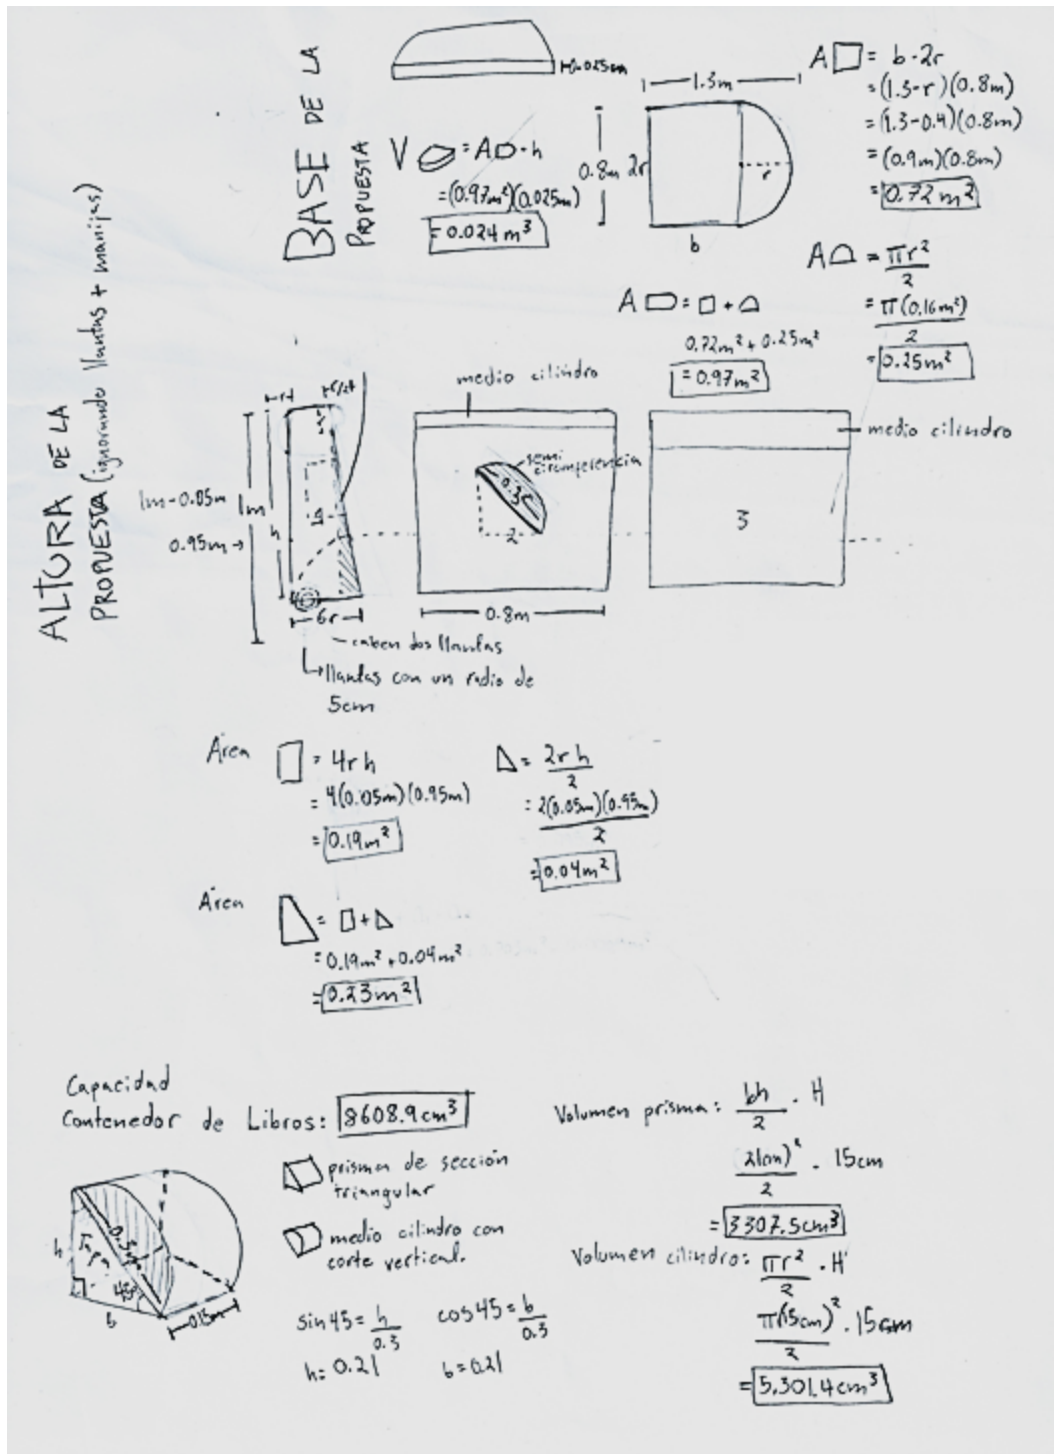 BASE DE LA
PROPUESTA
0.025m
V = A · h
= (0.97m²)(0.025m)
= 0.024 m³
1.3m
0.8m 2r
r
b
A = b · 2r
= (1.3-r)(0.8m)
= (1.3-0.4)(0.8m)
= (0.9m)(0.8m)
= 0.72 m²
A = πr²/2
= π(0.16m²)/2
= 0.25m²
A = □ + ⌓
0.72m² + 0.25m²
= 0.97m²
ALTURA DE LA
PROPUESTA (ignorando llantas + manijas)
1m-0.05m
0.95m →
1m
h
6r
caben dos llantas
llantas con un radio de
5cm
medio cilindro
semi
circumferencia
0.3
2
0.8m
medio cilindro
3
Área = 4rh
= 4(0.05m)(0.95m)
= 0.19m²
= 2rh/2
= 2(0.05m)(0.95m)/2
= 0.04m²
Área = □ + △
= 0.19m² + 0.04m²
= 0.23m²
Capacidad
Contenedor de Libros: 8608.9cm³
prisma de sección
triangular
medio cilindro con
corte vertical.
h
Tapa
0.3m
45°
b
0.15m
sin 45 = h/0.3
h = 0.21
cos 45 = b/0.3
b = 0.21
Volumen prisma: bh/2 · H
(21cm)²/2 · 15cm
= 3307.5cm³
Volumen cilindro: πr²/2 · H
π(15cm)²/2 · 15cm
= 5,301.4cm³